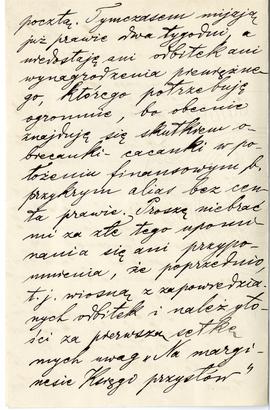 pocztą. Tymczasem mijają
już prawie dwa tygodni, a
niedostaję ani odbitek ani
wynagrodzenia pieniężne-
go, którego potrzebuję
ogromnie, bo obecnie
znajduję się skutkiem o-
biecanki-cacanki w po-
łożeniu finansowym b.
przykrym alias bez cen-
ta prawie. Proszę nie brać
mi za złe tego upomi-
nania się ani przypo-
mnienia, że poprzednio,
t. j. wiosną z zapowiedzia-
nych odbitek i należyto-
ści za pierwszą setkę
mych uwag „Na margi-
nesie Księgi przysłów"